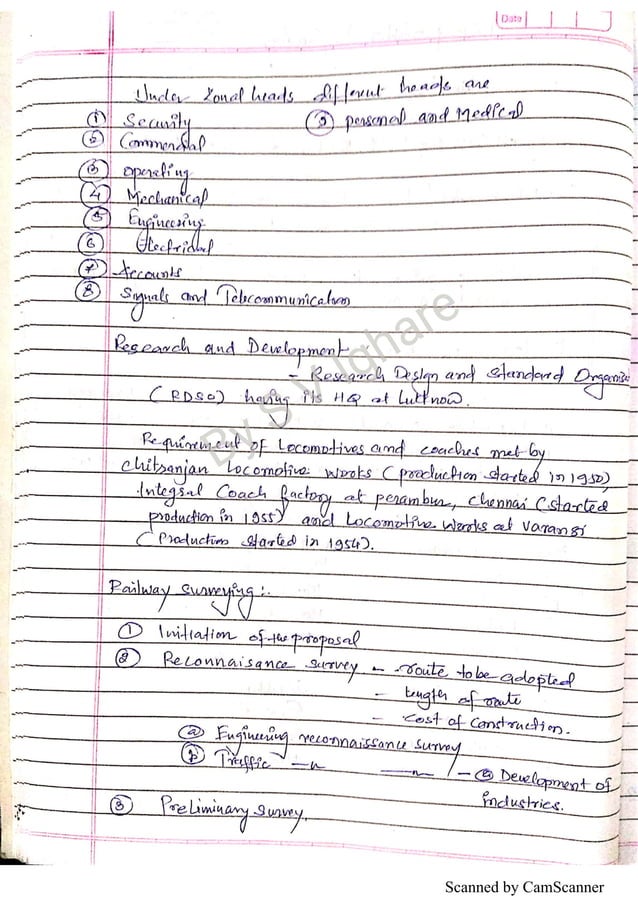 Date
Under zonal heads different heads are
① Security ⑨ personal and Medical
② Commercial
③ operating
④ Mechanical
⑤ Engineering
⑥ Electrical
⑦ Accounts
⑧ Signals and Telecommunication
Research and Development
- Research Design and Standard Organis
(RDSO) having its HQ at Lucknow.
Requirement of Locomotives and coaches met by
Chitranjan Locomotive works (production started in 1950)
Integral Coach factory at perambur, Chennai (started
production in 1955) and Locomotive works at Varansi
(Production started in 1954).
Railway surveying :.
① Initiation of the proposal
② Reconnaisance survey - route to be adopted
- length of route
- cost of construction.
ⓐ Engineering reconnaissance survey
ⓑ Traffic —〃— —〃— / - ⓐ Development of
industries.
③ Preliminary survey.
By S V Ighare
Scanned by CamScanner